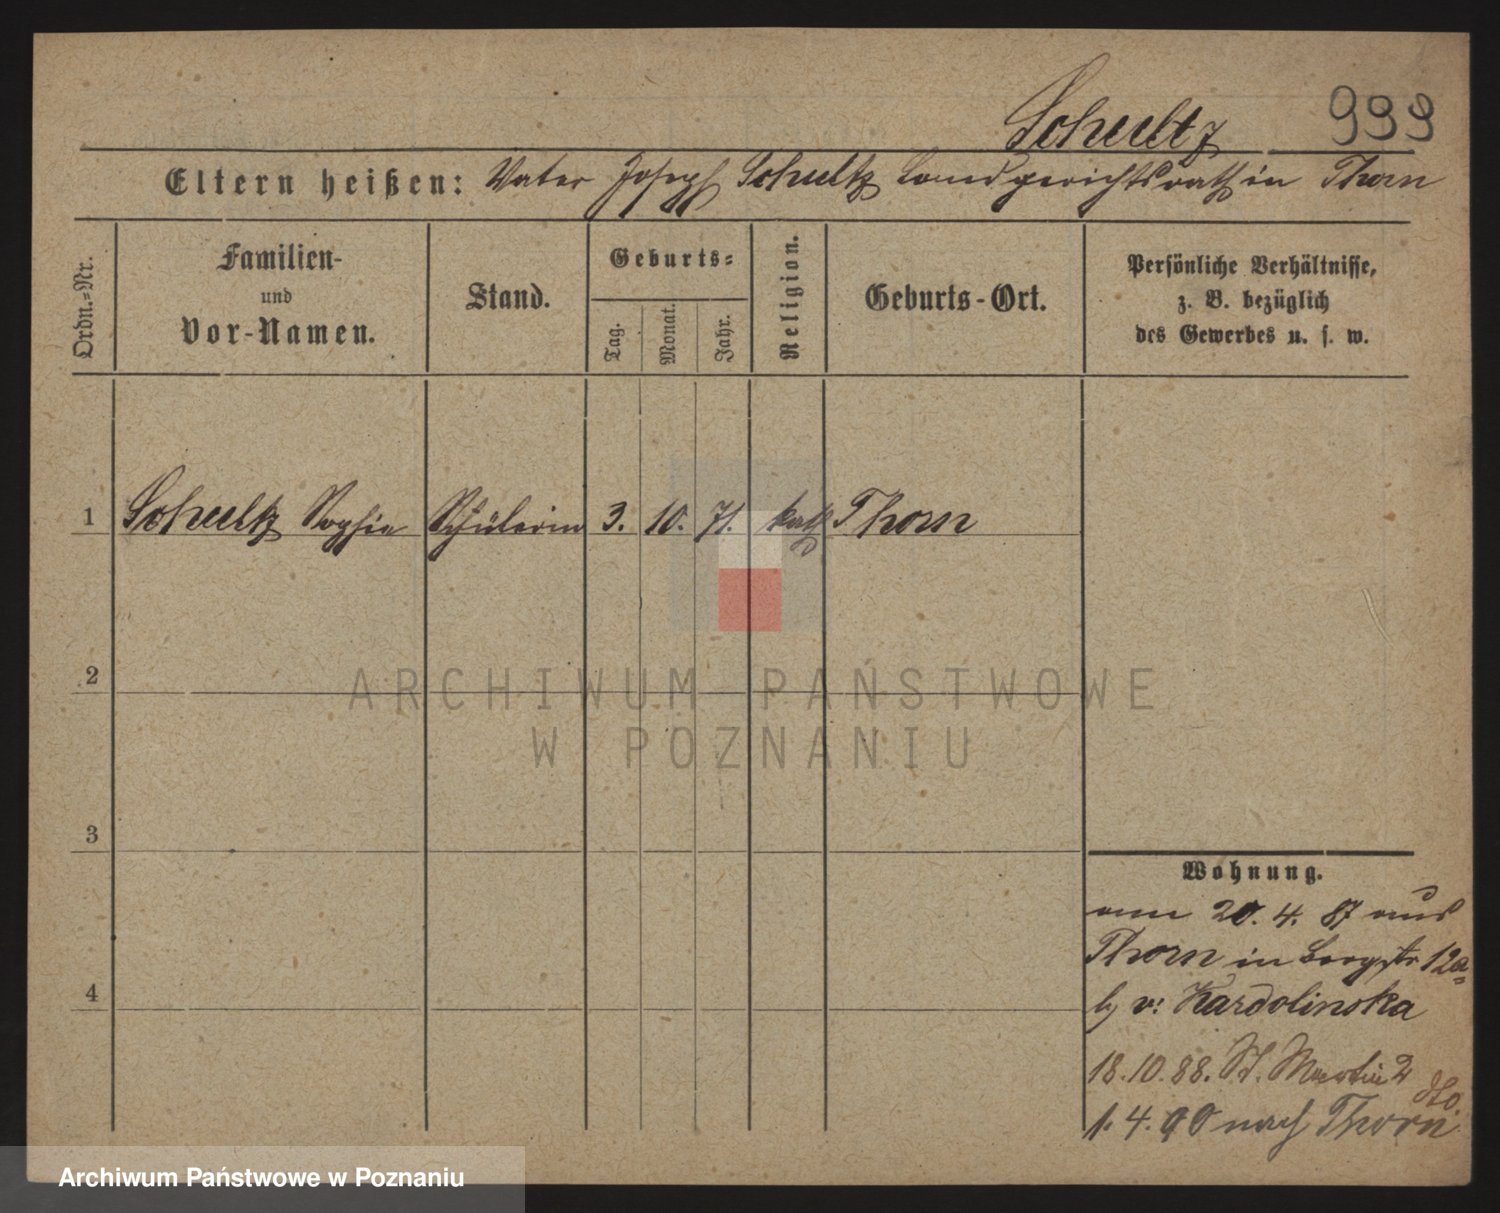 Schultz 999
Eltern heißen: Vater Joseph Schultz Landgerichtsrath in Thorn
Ordn.-Nr.
Familien-
und
Vor-Namen.
Stand.
Geburts-
Tag.
Monat.
Jahr.
Religion.
Geburts-Ort.
Persönliche Verhältnisse,
z. B. bezüglich
des Gewerbes u. s. w.
1 Schultz Sophie Schülerin 3. 10. 71. kath Thorn
2
ARCHIWUM PAŃSTWOWE
W POZNANIU
3
Wohnung.
am 20. 4. 87 aus
Thorn in Bergstr 12a
b v: Kardolinska
4
18.10.88. St. Martin 2
dto.
1. 4. 90 nach Thorn
Archiwum Państwowe w Poznaniu